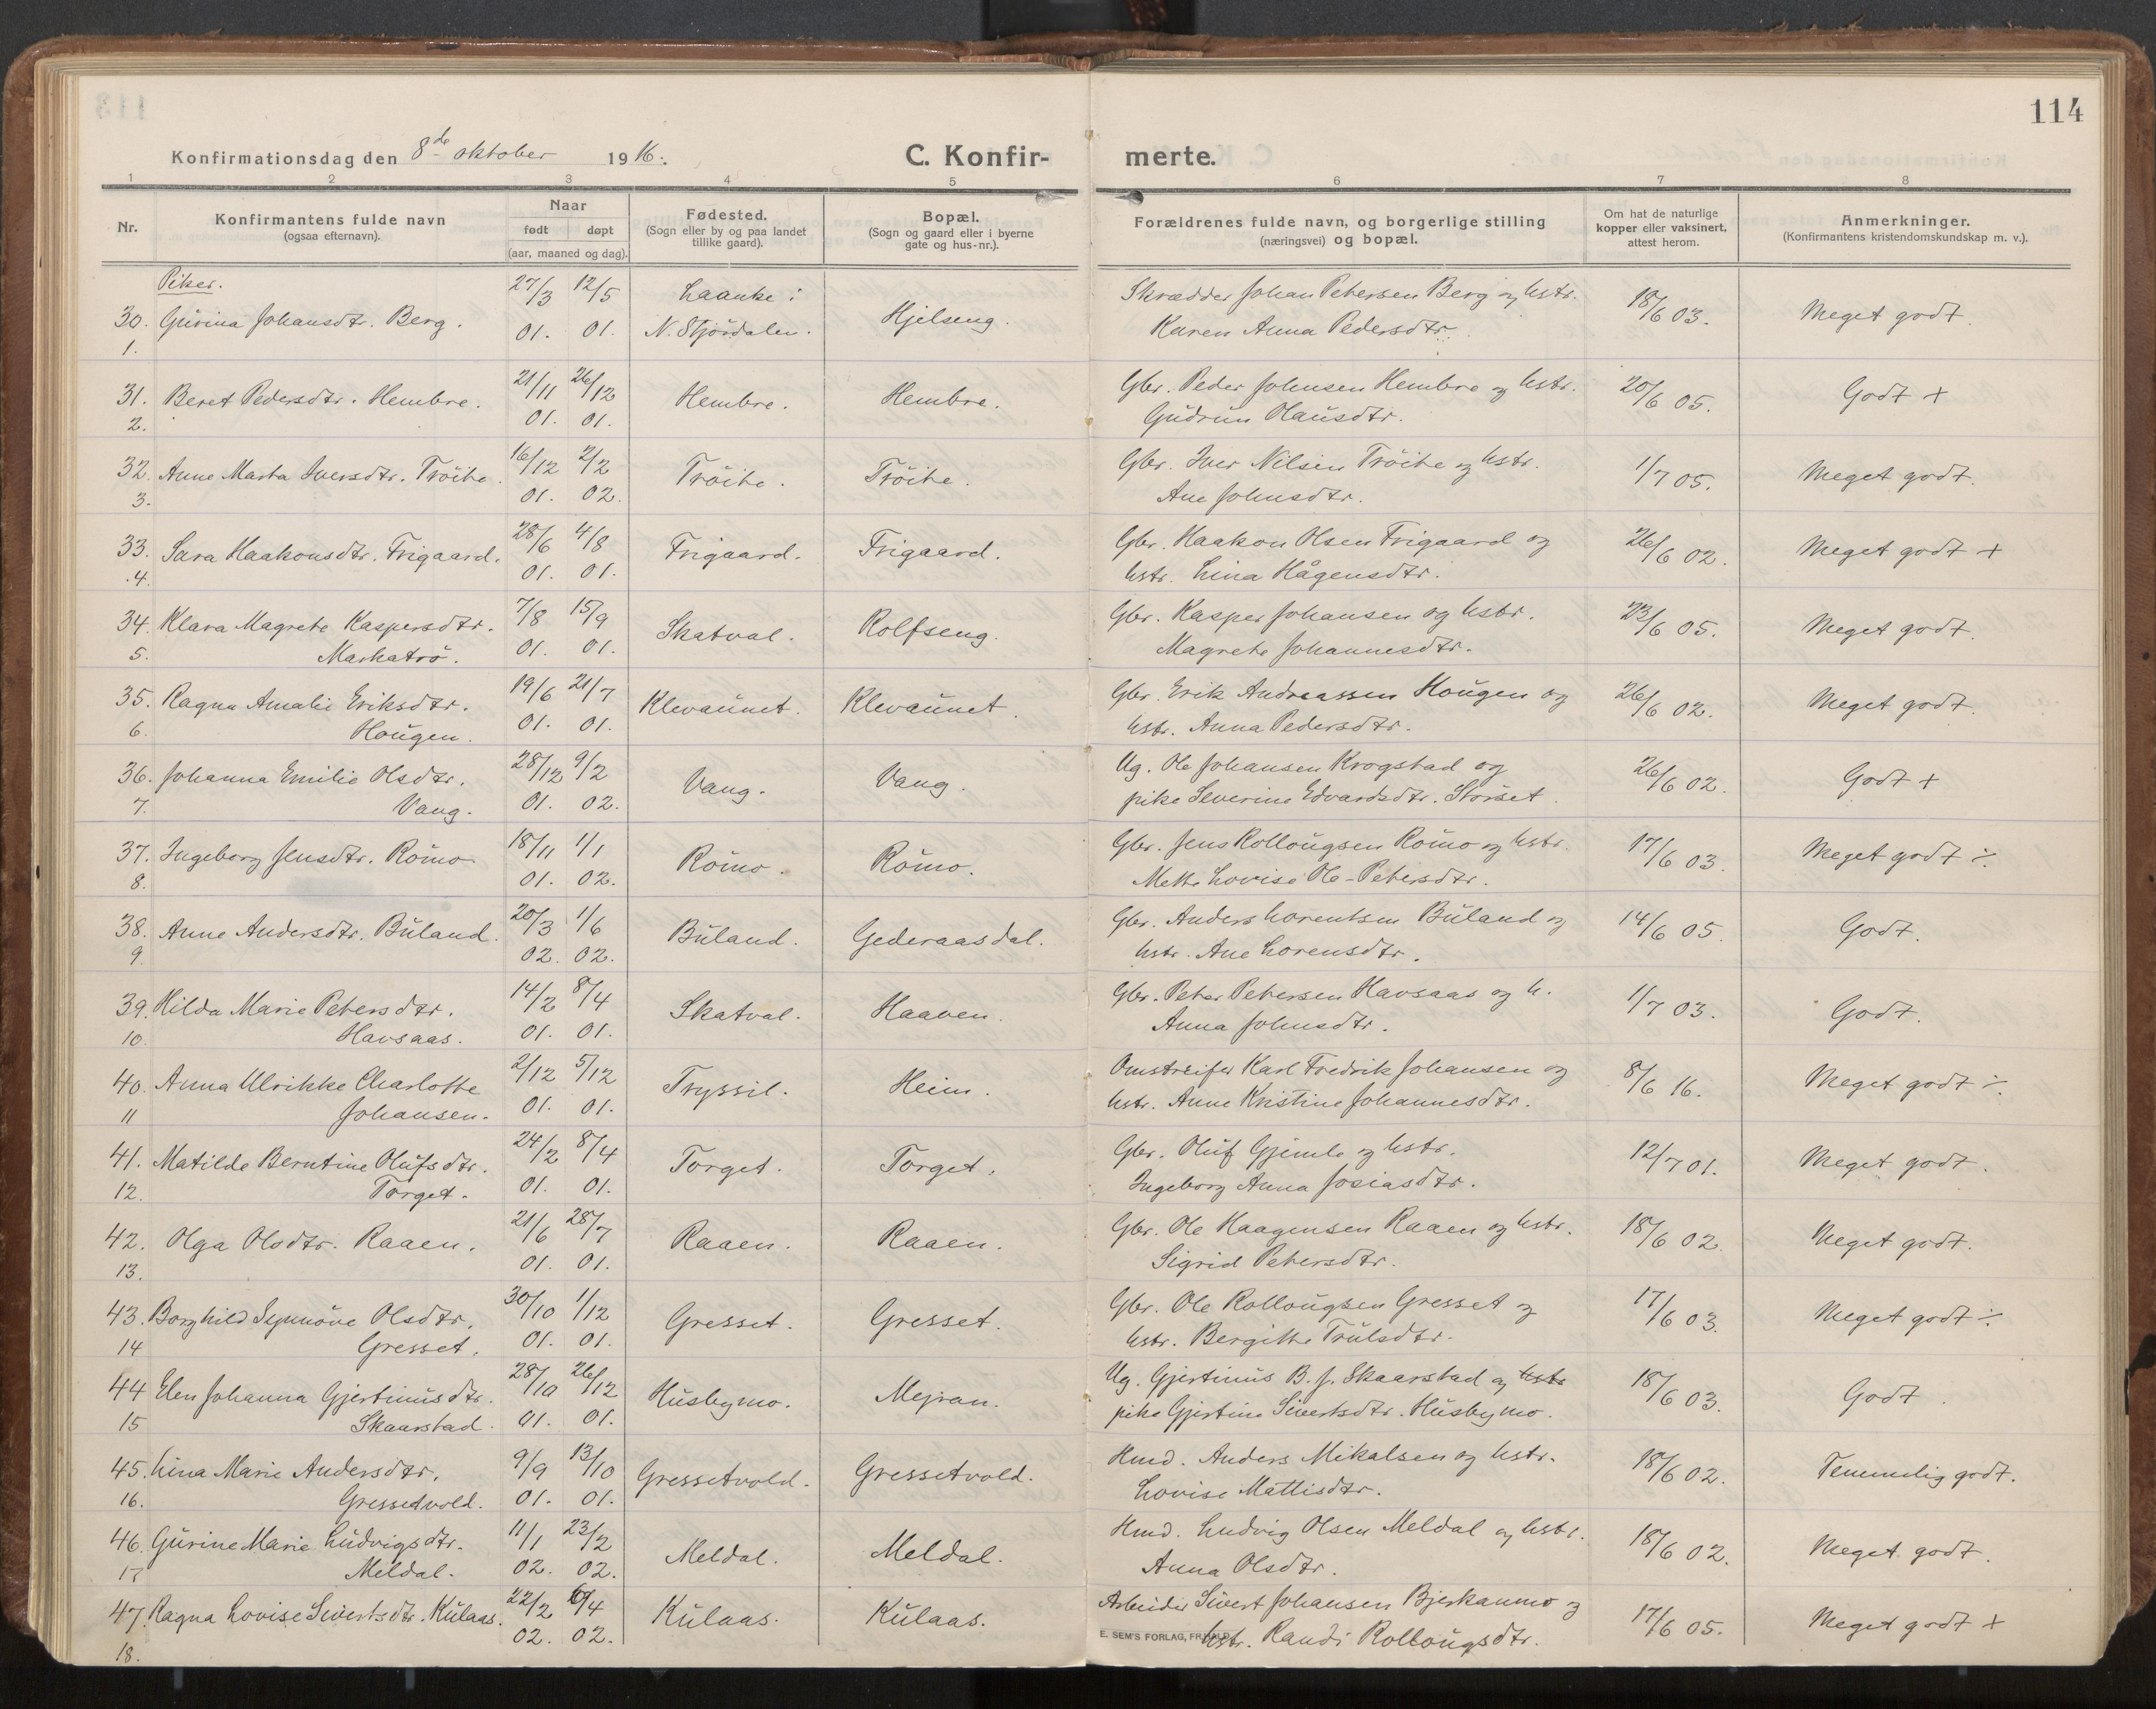 114
Konfirmationsdag den 8de oktober 1916. C. Konfirmerte.
1 2 3 4 5 6 7 8
Nr. Konfirmantens fulde navn (ogsaa efternavn). Naar født døpt (aar, maaned og dag). Fødested. (Sogn eller by og paa landet tillike gaard). Bopæl. (Sogn og gaard eller i byerne gate og hus-nr.). Forældrenes fulde navn, og borgerlige stilling (næringsvei) og bopæl. Om hat de naturlige kopper eller vaksinert, attest herom. Anmerkninger. (Konfirmantens kristendomskundskap m. v.).
Piker.
30. Gurina Johansdtr. Berg. 27/3 12/5 Laanke i Hjelseng. Skrædder Johan Petersen Berg og hstr. 18/6 03. Meget godt.
1. 01. 01. N. Stjørdalen. Karen Anna Pedersdtr.
31. Beret Pedersdtr. Hembre. 21/11 26/12 Hembre. Hembre. Gbr. Peder Johnsen Hembre og hstr. 20/6 05. Godt +
2. 01. 01. Gudrun Olausdtr.
32. Anne Marta Iversdtr. Tröite. 16/12 2/2 Tröite. Tröite. Gbr. Iver Nilsen Tröite og hstr. 1/7 05. Meget godt.
3. 01. 02. Ane Johnsdtr.
33. Sara Haakonsdtr. Frigaard. 28/6 4/8 Frigaard. Frigaard. Gbr. Haakon Olsen Frigaard og 26/6 02. Meget godt +
4. 01. 01. hstr. Lina Hågensdtr.
34. Klara Magrete Kaspersdtr. 7/8 15/9 Skatval. Rolfseng. Gbr. Kasper Johansen og hstr. 23/6 05. Meget godt.
5. Markatrö. 01. 01. Magrete Johannesdtr.
35. Ragna Amalie Eriksdtr. 19/6 21/7 Klevaunet. Klevaunet. Gbr. Erik Andreassen Hougen og 26/6 02. Meget godt.
6. Hougen. 01. 01. hstr. Anna Pedersdtr.
36. Johanna Emilie Olsdtr. 28/12 9/2 Vang. Vang. Ug. Ole Johansen Krogstad og 26/6 02. Godt +
7. Vang. 01. 02. pike Severine Edvardsdtr. Storset.
37. Ingeborg Jensdtr. Römo. 18/11 1/1 Römo. Römo. Gbr. Jens Rollougsen Römo og hstr. 17/6 03. Meget godt ÷
8. 01. 02. Mette Lovise Ole-Petersdtr.
38. Anne Andersdtr. Buland. 20/3 1/6 Buland. Gederaasdal. Gbr. Anders Lorentsen Buland og 14/6 05. Godt.
9. 02. 02. hstr. Ane Lorensdtr.
39. Hilda Marie Petersdtr. 14/2 8/4 Skatval. Haaven. Gbr. Peter Petersen Havsaas og h. 1/7 03. Godt.
10. Havsaas. 01. 01. Anna Johnsdtr.
40. Anna Ulrikke Charlotte 2/12 5/12 Tryssil. Heim. Omstreifer Karl Fredrik Johansen og 8/6 16. Meget godt ÷
11 Johansen. 01. 01. hstr. Anne Kristine Johannesdtr.
41. Matilde Berntine Olufsdtr. 24/2 8/4 Torget. Torget. Gbr. Oluf Gjemle og hstr. 12/7 01. Meget godt.
12. Torget. 01. 01. Ingeborg Anna Josiasdtr.
42. Olga Olsdtr. Raaen. 21/6 28/7 Raaen. Raaen. Gbr. Ole Haagensen Raaen og hstr. 18/6 02. Meget godt.
13. 01. 01. Sigrid Petersdtr.
43. Borghild Synnöve Olsdtr. 30/10 1/12 Gresset. Gresset. Gbr. Ole Rollougsen Gresset og 17/6 03. Meget godt ÷
14 Gresset. 01. 01. hstr. Bergitte Trulsdtr.
44 Elen Johanna Gjertinusdtr. 28/10 26/12 Husbymo. Mejran. Ug. Gjertinus B. J. Skaarstad og hstr 18/6 03. Godt.
15 Skaarstad. 01. 01. pike Gjertine Sivertsdtr. Husbymo.
45. Lina Marie Andersdtr. 9/9 13/10 Gressetvold. Gressetvold. Hmd. Anders Mikalsen og hstr. 18/6 02. Temmelig godt.
16. Gressetvold. 01. 01. Lovise Mattisdtr.
46. Gurine Marie Ludvigsdtr. 11/1 23/2 Meldal. Meldal. Hmd. Ludvig Olsen Meldal og hstr. 18/6 02. Meget godt.
17 Meldal. 02. 02. Anna Olsdtr.
47. Ragna Lovise Sivertsdtr. Kulaas. 22/2 6/4 Kulaas. Kulaas. Arbeider Sivert Johansen Bjerkanmo og 17/6 05. Meget godt +
18. 02. 02. E. SEM'S FORLAG, FR.HALD hstr. Randi Rollougsdtr.